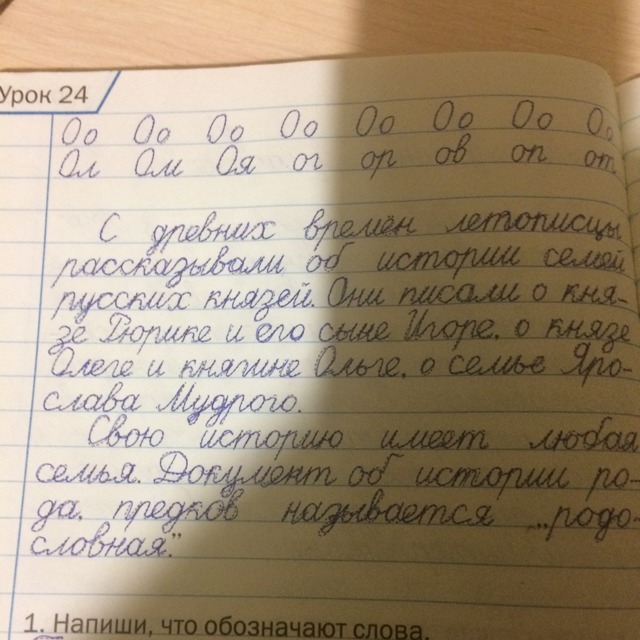 Урок 24
Оо Оо Оо Оо Оо Оо Оо Оо
Ол Ом Оя ог ор ов оп от
С древних времён летописцы
рассказывали об истории семей
русских князей. Они писали о кня-
зе Рюрике и его сыне Игоре, о князе
Олеге и княгине Ольге, о семье Яро-
слава Мудрого.
Свою историю имеет любая
семья. Документ об истории ро-
да, предков называется „родо-
словная."
1. Напиши, что обозначают слова.